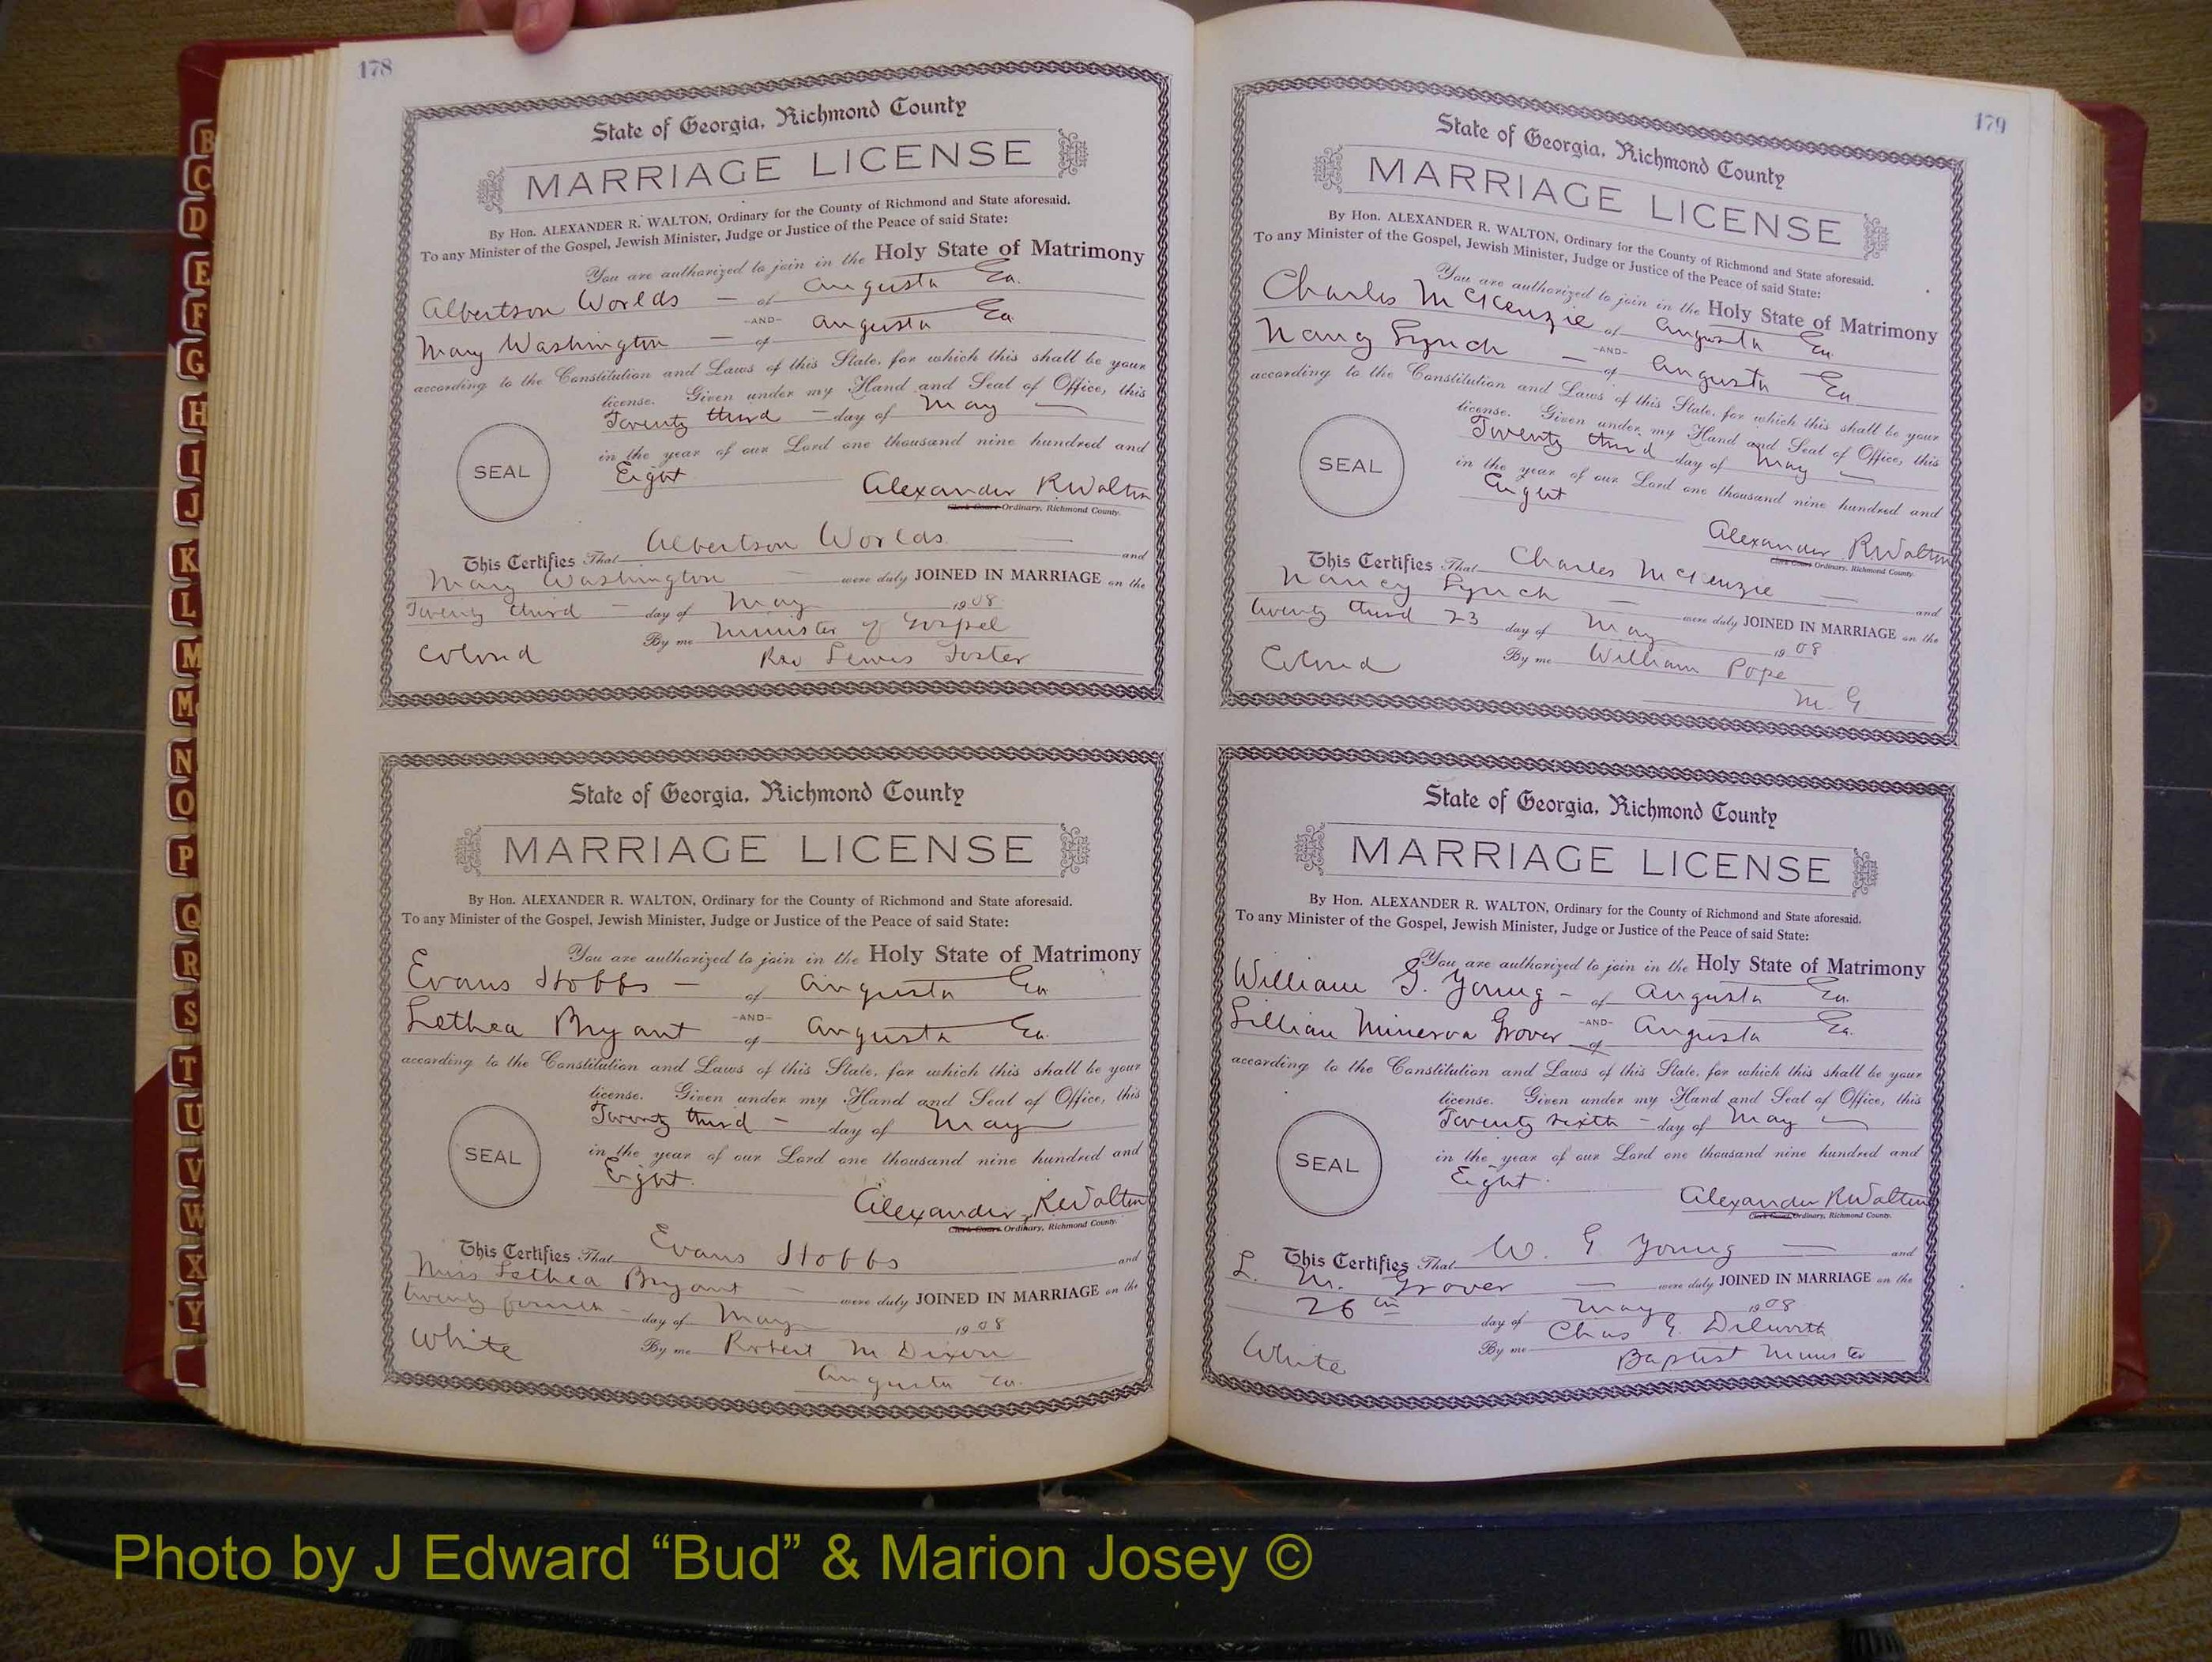 178
State of Georgia, Richmond County
MARRIAGE LICENSE
By Hon. ALEXANDER R. WALTON, Ordinary for the County of Richmond and State aforesaid.
To any Minister of the Gospel, Jewish Minister, Judge or Justice of the Peace of said State:
You are authorized to join in the Holy State of Matrimony
Albertson Worlds — of Augusta Ga.
-AND-
Mary Washington — of Augusta Ga
according to the Constitution and Laws of this State, for which this shall be your
license. Given under my Hand and Seal of Office, this
Twenty third — day of May —
in the year of our Lord one thousand nine hundred and
Eight
SEAL
Alexander R Walton
Clerk Court Ordinary, Richmond County.
This Certifies That Albertson Worlds — and
Mary Washington — were duly JOINED IN MARRIAGE on the
Twenty third — day of May 1908
By me Minister of Gospel
Colord Rev Lewis Foster
State of Georgia, Richmond County
MARRIAGE LICENSE
By Hon. ALEXANDER R. WALTON, Ordinary for the County of Richmond and State aforesaid.
To any Minister of the Gospel, Jewish Minister, Judge or Justice of the Peace of said State:
You are authorized to join in the Holy State of Matrimony
Evans Hobbs — of Augusta Ga
-AND-
Lethea Bryant of Augusta Ga.
according to the Constitution and Laws of this State, for which this shall be your
license. Given under my Hand and Seal of Office, this
Twenty third — day of May
in the year of our Lord one thousand nine hundred and
Eight.
SEAL
Alexander R Walton
Clerk Court Ordinary, Richmond County.
This Certifies That Evans Hobbs and
Miss Lethea Bryant — were duly JOINED IN MARRIAGE on the
twenty fourth — day of May 1908
White By me Robert M Dixon
Augusta Ga.
179
State of Georgia, Richmond County
MARRIAGE LICENSE
By Hon. ALEXANDER R. WALTON, Ordinary for the County of Richmond and State aforesaid.
To any Minister of the Gospel, Jewish Minister, Judge or Justice of the Peace of said State:
You are authorized to join in the Holy State of Matrimony
Charles McKenzie of Augusta Ga.
-AND-
Nancy Lynch — of Augusta Ga
according to the Constitution and Laws of this State, for which this shall be your
license. Given under my Hand and Seal of Office, this
Twenty third day of May —
in the year of our Lord one thousand nine hundred and
Eight
SEAL
Alexander R Walton
Clerk Court Ordinary, Richmond County.
This Certifies That Charles McKenzie — and
Nancy Lynch — were duly JOINED IN MARRIAGE on the
twenty third 23 day of May 1908
Colord By me William Pope
M. G
State of Georgia, Richmond County
MARRIAGE LICENSE
By Hon. ALEXANDER R. WALTON, Ordinary for the County of Richmond and State aforesaid.
To any Minister of the Gospel, Jewish Minister, Judge or Justice of the Peace of said State:
You are authorized to join in the Holy State of Matrimony
William G. Young — of Augusta Ga.
-AND-
Lillian Minerva Grover of Augusta Ga.
according to the Constitution and Laws of this State, for which this shall be your
license. Given under my Hand and Seal of Office, this
Twenty sixth — day of May —
in the year of our Lord one thousand nine hundred and
Eight.
SEAL
Alexander R Walton
Clerk Court Ordinary, Richmond County.
This Certifies That W. G Young — and
L. M. Grover — were duly JOINED IN MARRIAGE on the
26th day of May 1908
By me Chas G. Dilworth
White Baptist Minister
B
C
D
E
F
G
H
I
J
K
L
M
Mc
N
O
P
Q
R
S
T
U
V
W
X
Y
Photo by J Edward “Bud” & Marion Josey ©